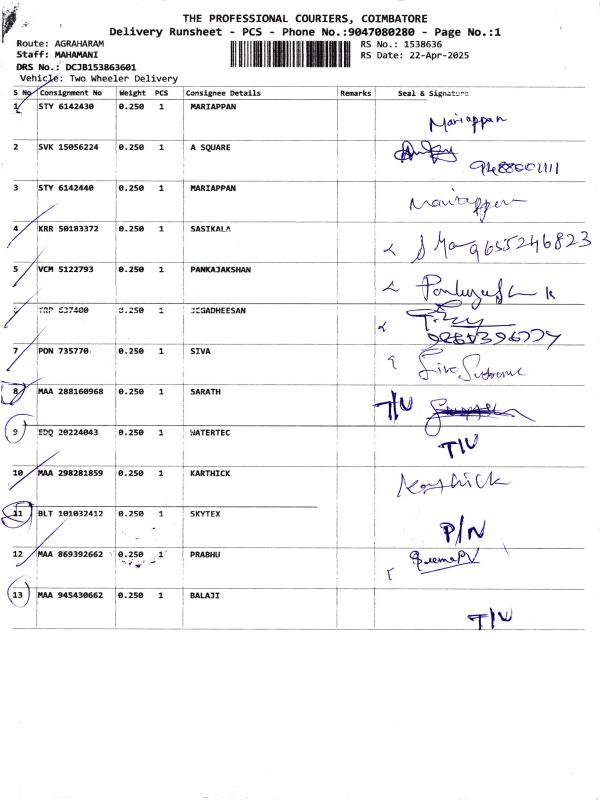 THE PROFESSIONAL COURIERS, COIMBATORE
Delivery Runsheet - PCS - Phone No.:9047080280 - Page No.:1
Route: AGRAHARAM RS No.: 1538636
Staff: MAHAMANI RS Date: 22-Apr-2025
DRS No.: DCJB153863601
Vehicle: Two Wheeler Delivery
S No Consignment No Weight PCS Consignee Details Remarks Seal & Signature
1 STY 6142430 0.250 1 MARIAPPAN Mariappan
2 SVK 15056224 0.250 1 A SQUARE
3 STY 6142440 0.250 1 MARIAPPAN Mariappan
4 KRR 50183372 0.250 1 SASIKALA 9655246823
5 VCM 5122793 0.250 1 PANKAJAKSHAN
6 TRP 637400 0.250 1 JEGADHEESAN
7 PON 735770 0.250 1 SIVA
8 MAA 288160968 0.250 1 SARATH T/U
9 EDQ 20224043 0.250 1 WATERTEC T/U
10 MAA 298281859 0.250 1 KARTHICK Karthick
11 BLT 101032412 0.250 1 SKYTEX P/N
12 MAA 869392662 0.250 1 PRABHU
13 MAA 945430662 0.250 1 BALAJI T/U